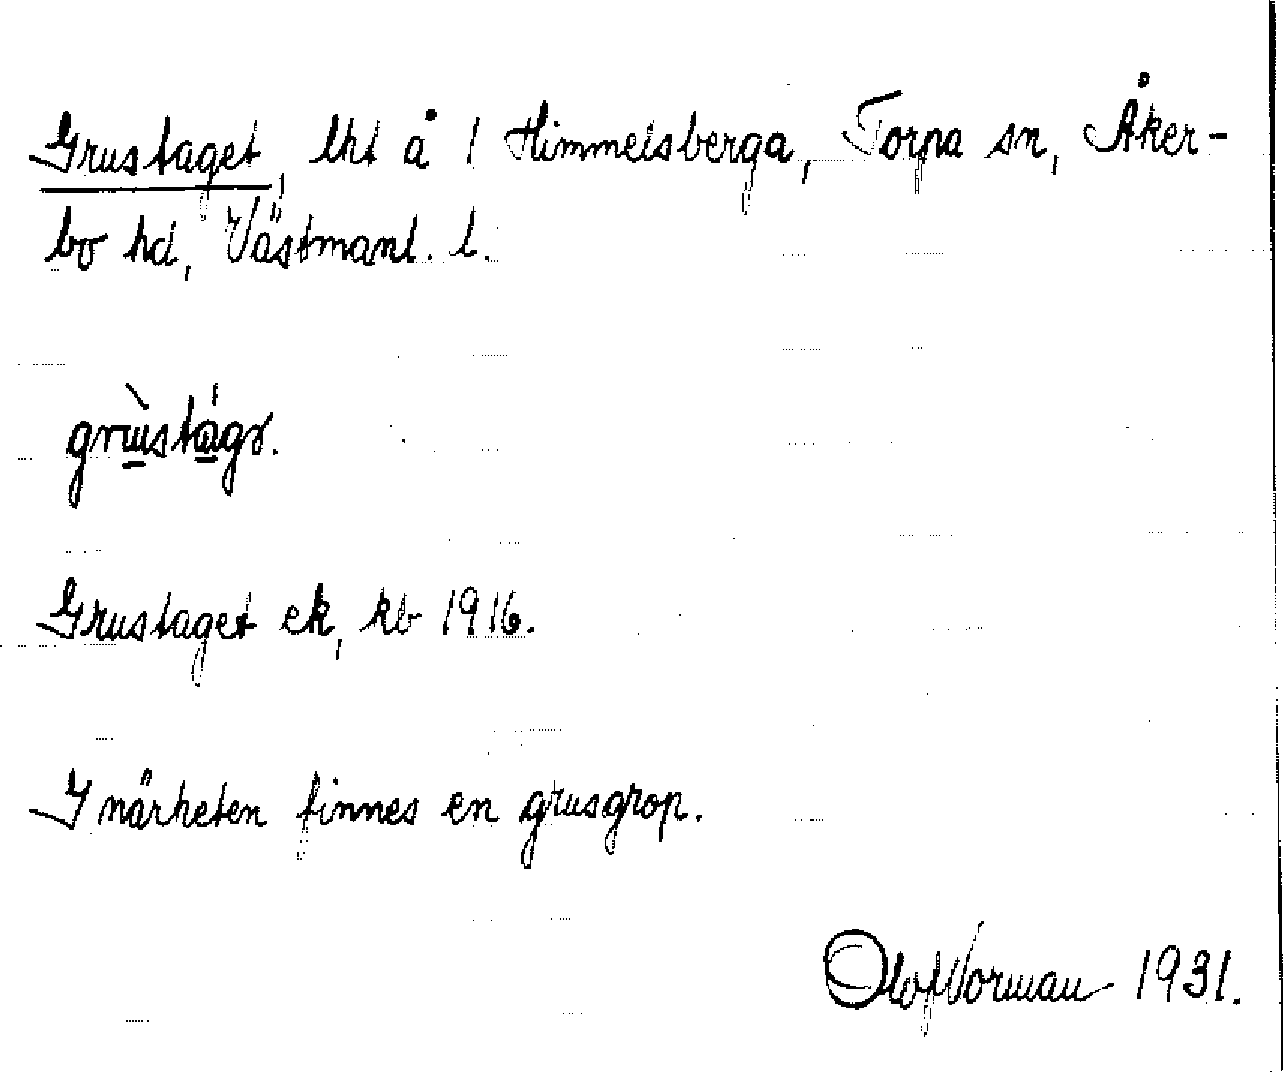 Grustaget, lht å 1 Himmelsberga, Torpa sn, Åker-
bo hd, Västmanl. l.
Grustaget ek, kb 1916.
I närheten finnes en grusgrop.
Olof Norman 1931.